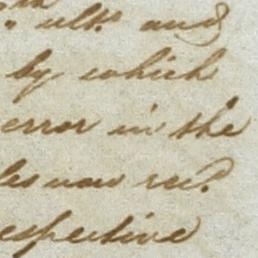 ulto and
by which
error in the
les now recd
espective